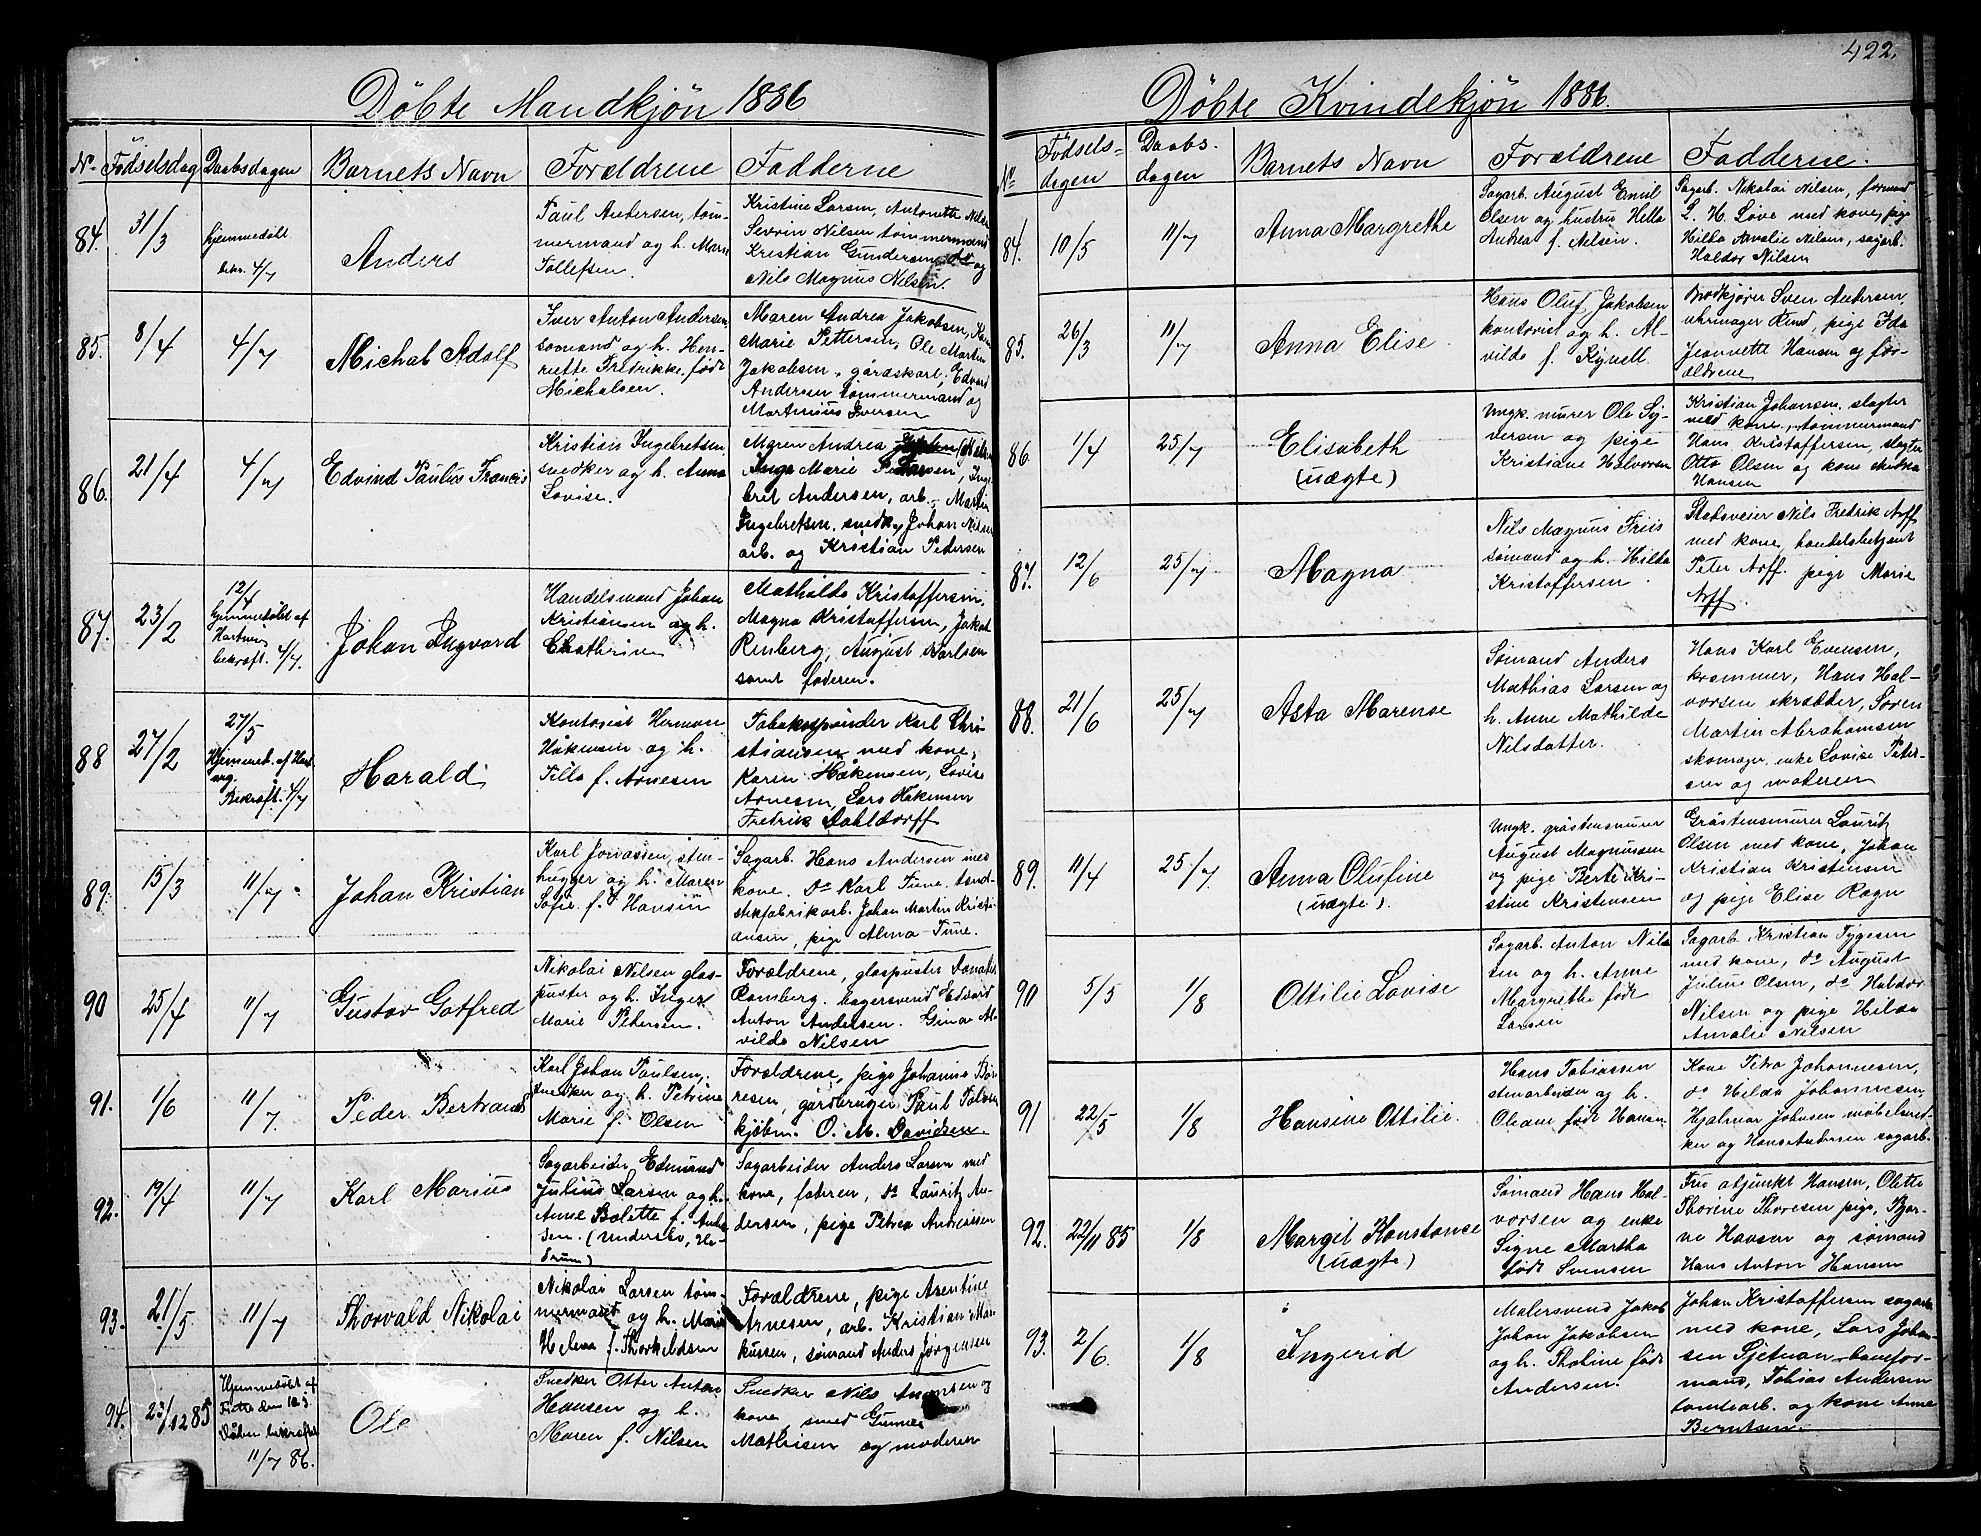 422.
Döbte Mandkjön 1886
No Födselsdag Daabsdagen Barnets Navn Forældrene Fadderne
84. 31/3 hjemmedöbt
bekr. 4/7
Anders
Paul Andersen, töm-
mermand og h. Maren
Tollefsen.
Kristine Larsen, Antonette Nilsen
Severin Nilsen tømmermand
Kristian Gundersen do og
Nils Magnus Nilsen.
85. 8/4 4/7 Michal Adolf
Iver Anton Andersen,
sömand og h. Hen-
riette Fredrikke, født
Michalsen.
Maren Andrea Jakobsen,
Marie Pettersen, Ole Martin
Jakobsen, gårdskarl, Edvard
Andersen tömmermand og
Martinius Iversen
86. 21/4 4/7 Edvind Paulus Francis
Kristian Ingebretsen
snedker og h. Anna
Lovise.
Maren Andrea
Inga Marie Pedersen, Inge-
bret Andersen, arb., Martin
Ingebretsen, snedk., Johan Nilsen
arb. og Kristian Pedersen
87. 23/2 12/4
hjemmedöbt af
Hartvig
bekræft. 4/7.
Johan Ingvard
Handelsmand Johan
Kristiansen og h.
Chathrine
Mathilde Kristoffersen,
Magna Kristoffersen, Jakob
Renberg, August Karlsen
samt faderen.
88 27/2 27/5
Hjemmet. af Hart-
vig.
Bekræft. 4/7
Harald
Kontorist Herman
Håkensen og h.
Tilla f. Arnesen
Tobakspinder Karl Chri-
stiansen med kone,
Karen Håkensen, Lovise
Arnesen, Lars Håkensen
Fredrik Dahldorff
89. 15/3 11/7 Johan Kristian
Karl Jonassen, sten-
hugger og h. Maren
Sofie f. Hansen
Sagarb. Hans Andersen med
kone. do Karl Tune, tænd-
stikfabrikarb. Johan Martin Kristi-
ansen, pige Alma Tune.
90 25/4 11/7 Gustav Gotfred
Nikolai Nilsen glas-
puster og h. Inger
Marie Petersen.
Forældrene, glaspuster Donatus
Ramberg, bagersvend Edvard
Anton Andersen. Gina Al-
vilde Nilsen
91. 1/6 11/7. Peder Bertrand
Karl Johan Paulsen,
snedker og h. Petrine
Marie f. Olsen
Forældrene, pige Johanne Bör-
resen, gårdbruger Paul Tolvsen
kjöbm. O. M. Davidsen.
92. 19/4 11/7 Karl Marius
Sagarbeider Edmund
Julius Larsen og h.
Anne Bolette f. Ander-
sen.
Sagarbeider Anders Larsen med
kone, faderen, do Lauritz An-
dersen, pige Petrea Andreassen
93. 21/5 11/7 Thorvald Nikolai
Nikolai Larsen töm-
mermand og h. Maren
Helene f. Thorkeldsen
Forældrene, pige Arentine
Arnesen, arb. Kristian Mar-
kussen, sömand Anders Jörgensen
94. 23/12 85 Hjemmedöbt af
Döben bekræftet
11/7 86.
Ole
Snedker Otter Anton
Hansen og h.
Maren f. Nilsen
Snedker Nils Andersen og
kone, smed Gunner
Mathisen og moderen
Döbte Kvindekjön 1886.
No Födsels-
dagen Daabs-
dagen Barnets Navn Forældrene Fadderne.
84. 10/5 11/7 Anna Margrethe
Sagarb. August Emil
Olsen og hustru Hilla
Andrea f. Nilsen.
Sagarb. Nikolai Nilsen, formand
L. H. Love med kone, pige
Hilda Amalie Nilsen, sagarb.
Haldor Nilsen
85. 26/3 11/7 Anna Elise.
Hans Oluf Jakobsen
kontorist og h. Al-
vilde f. Kynell.
Brödkjörer Sven Andersen,
uhrmager Rend, pige Ida
Jeannette Hansen og for-
ældrene
86. 1/4 25/7 Elisabeth
(uægte)
Ungk. murer Ole Sy-
versen og pige
Kristiane Halvorsen
Kristian Johansen, slagter
med kone, tömmermand
Hans Kristoffersen, slagter
Otto Olsen og kone Andrea
Hansen
87. 12/6 25/7 Magna
Nils Magnus Friis
sömand og h. Hilda
Kristoffersen.
Stadsveier Nils Fredrik Arff
med kone, handelsbetjent
Peter Arff, pige Marie
Arff.
88. 21/6 25/7 Asta Marense
Sömand Anders
Mathias Larsen og
h. Anne Mathilde
Nilsdatter.
Hans Karl Evensen,
kræmmer, Hans Hal-
vorsen skrædder, Sören
Martin Abrahamsen
skomager, enke Lovise Peter-
sen og moderen
89. 11/4 25/7. Anna Olufine
(uægte).
Ungk. gråstensmurer
August Magnussen
og pige Berte Kri-
stine Kristensen
Gråstensmurer Lauritz
Olsen med kone, Johan
Kristian Kristensen
og pige Elise Ragn
90 5/5 1/8 Ottilie Lovise
Sagarb. Anton Nil-
sen og h. Anne
Margrethe født
Larsen
Sagarb. Kristian Tygesen
med kone, do August
Julius Olsen, do Haldor
Nilsen og pige Hilda
Amalie Nilsen
91 22/5 1/8 Hansine Ottilie.
Hans Tobiassen
stenarbeider og h.
Oleane født Hansen
Kone Petra Johannesen,
do Hilda Johannesen,
Hjalmar Johnsen möbelsned-
ker og Hans Andersen sagarb.
92. 22/11 85 1/8 Margit Konstanse
(uægte)
Sömand Hans Hal-
vorsen og enke
Signe Martha
født Svensen
Fru adjunkt Hansen, Olette
Thorine Thoresen pige, Bjar-
ne Hansen og sömand
Hans Anton Hansen
93. 2/6. 1/8 Ingerid
Malersvend Jakob
Johan Jakobsen
og h. Thaline født
Andersen.
Johan Kristoffersen sagarb.
med kone, Lars Johan-
sen Sjetnan banefor-
mand, Tobias Andersen
tomtearb. og kone Anne
Berntsen.